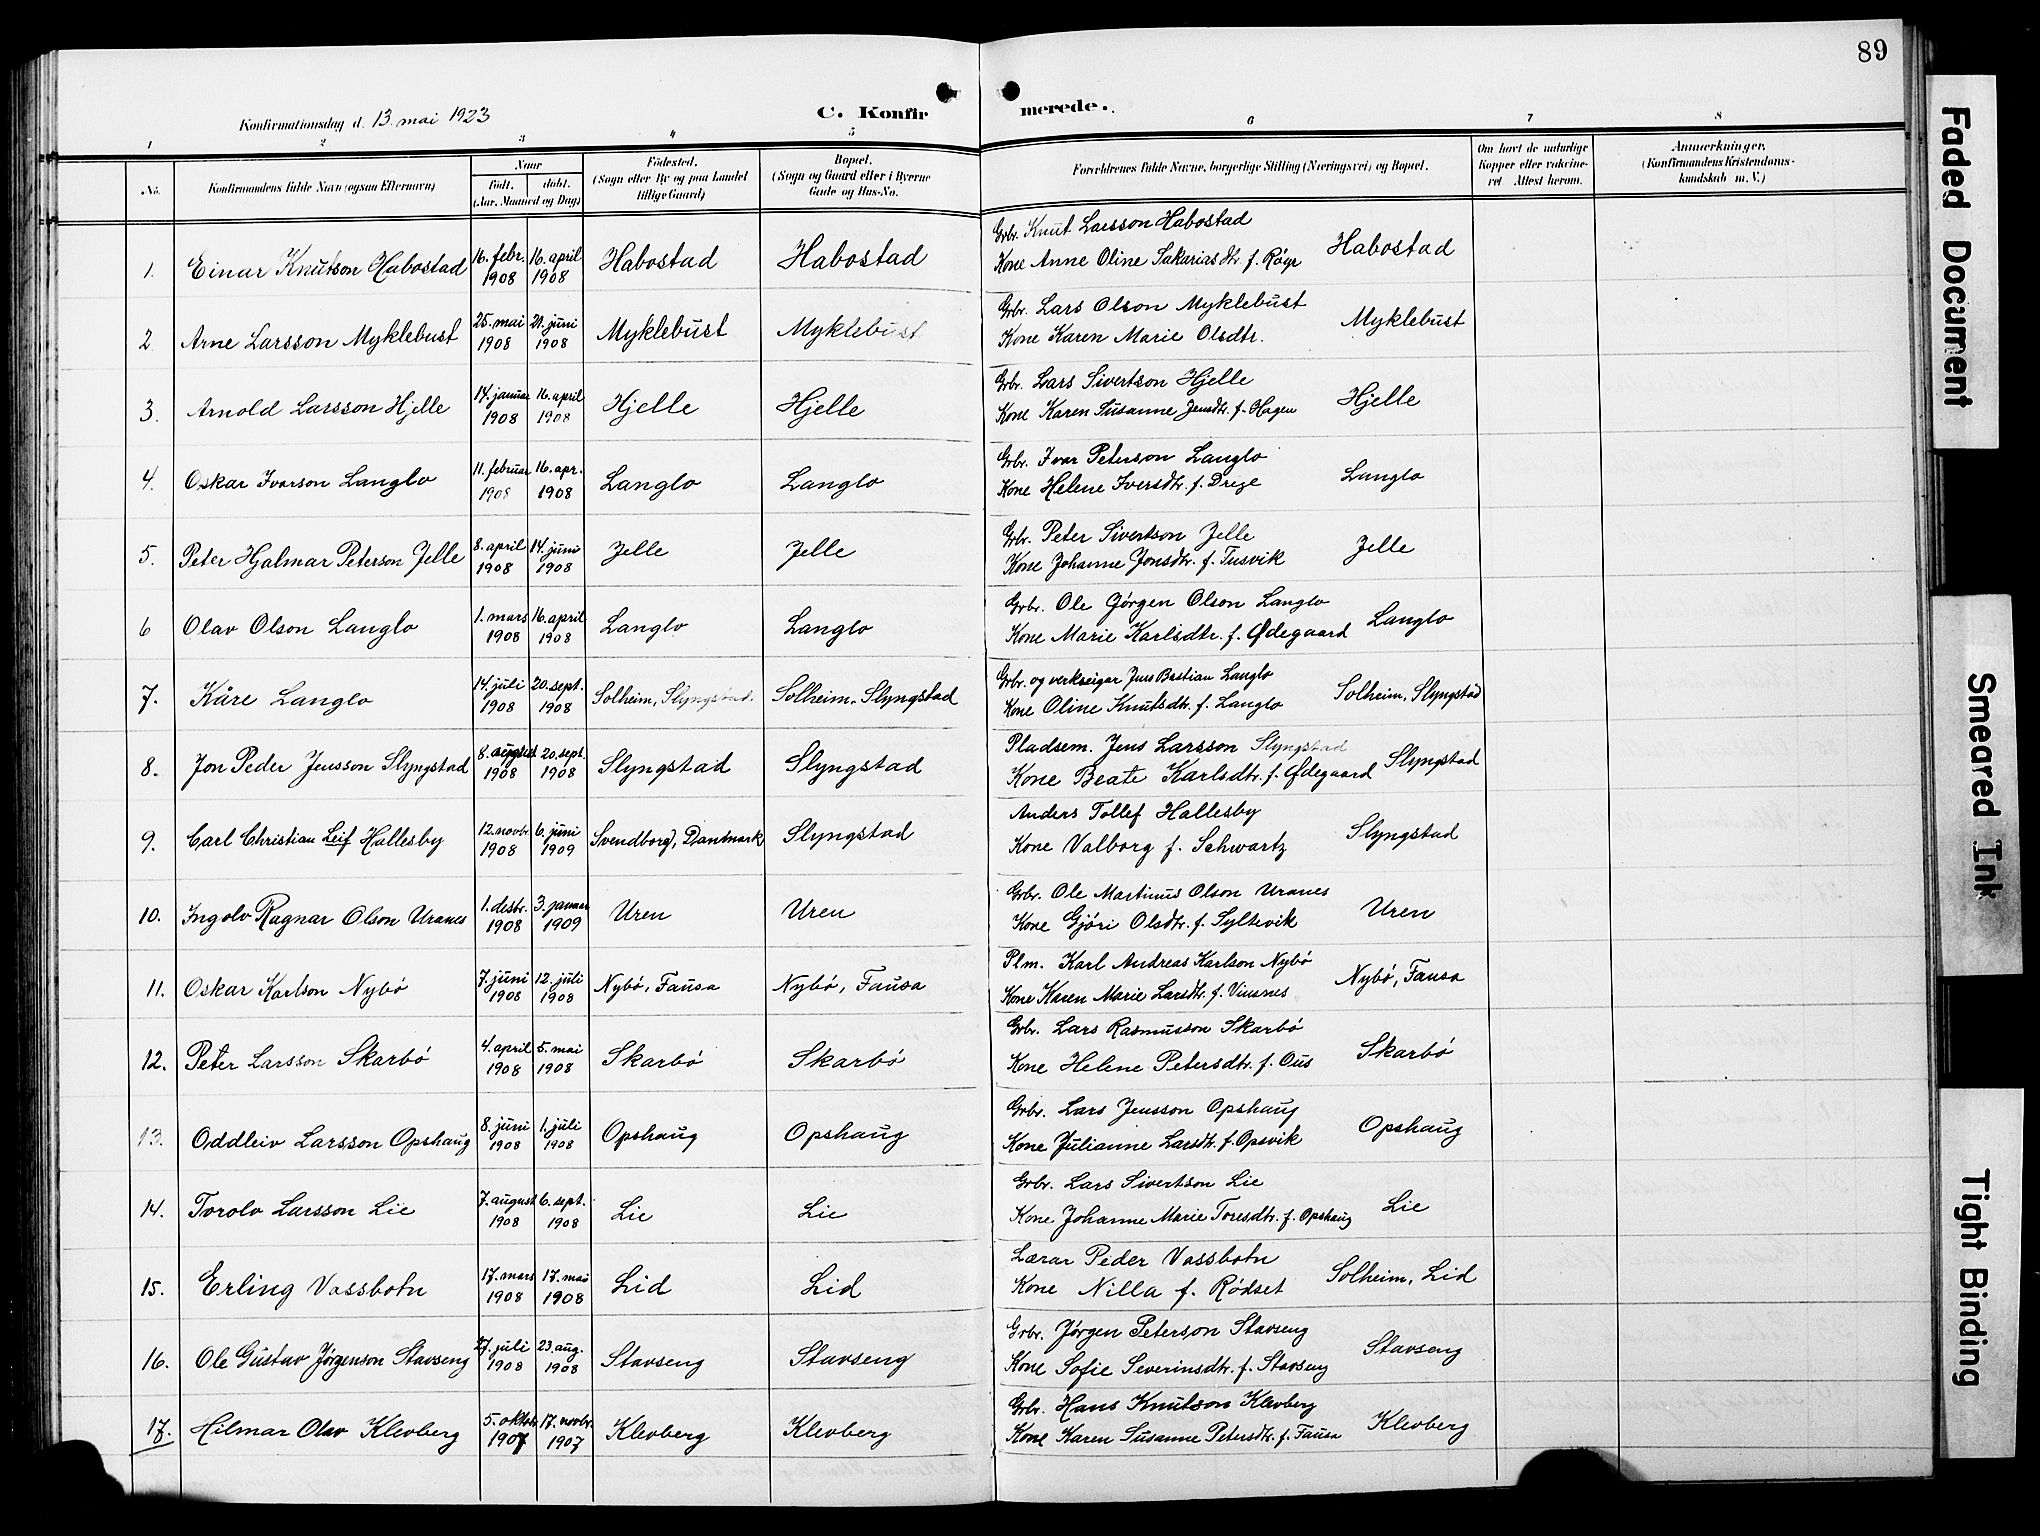 89
Konfirmationsdag d. 13. mai 1923 C. Konfir merede.
1 2 3 4 5 6 7 8
No. Konfirmandens fulde Navn (ogsaa Efternavn) Naar født. døbt. (Aar, Maaned og Dag) Fødested. (Sogn eller By og paa Landet tillige Gaard) Bopæl. (Sogn og Gaard eller i Byerne Gade og Hus-No. Forældrenes fulde Navne, borgerlige Stilling (Næringsvei) og Bopæl. Om havt de naturlige Kopper eller vakcineret Attest herom. Anmærkninger. (Konfirmandens Kristendomskundskab m. V.)
1. Einar Knutson Habostad 16. febr. 1908 16. april 1908 Habostad Habostad Grbr. Knut Larsson Habostad
Kone Anne Oline Sakariasdtr. f. Røyr Habostad
2 Arne Larsson Myklebust 25. mai 1908 21. juni 1908 Myklebust Myklebust Grbr. Lars Olson Myklebust
Kone Karen Marie Olsdtr. Myklebust
3. Arnold Larsson Hjelle 14. januar 1908 16. april 1908 Hjelle Hjelle Grbr. Lars Sivertson Hjelle
Kone Karen Susanne Jensdtr. f. Hagen Hjelle
4. Oskar Ivarson Langlo 11. februar 1908 16. apr. 1908 Langlo Langlo Grbr. Ivar Peterson Langlo
Kone Helene Iversdtr. f. Drege Langlo
5. Peter Hjalmar Peterson Jelle 8. april 1908 14. juni 1908 Jelle Jelle Grbr. Peter Sivertson Jelle
Kone Johanne Jonsdtr. f. Tusvik Jelle
6 Olav Olson Langlo 1. mars 1908 16. april 1908 Langlo Langlo Grbr. Ole Jørgen Olson Langlo
Kone Marie Karlsdtr. f. Ødegaard Langlo
7. Kåre Langlo 14. juli 1908 20. sept. 1908 Solheim, Slyngstad. Solheim, Slyngstad Grbr. og verkseigar Jens Bastian Langlo
Kone Oline Knutsdtr. f. Langlo Solheim, Slyngstad
8. Jon Peder Jensson Slyngstad 8. august 1908 20. sept. 1908 Slyngstad Slyngstad Pladsem. Jens Larsson Slyngstad
Kone Beate Karlsdtr. f. Ødegaard Slyngstad
9. Carl Christian Leif Hallesby 12. novbr 1908 6. juni 1909 Svendborg, Danmark Slyngstad Anders Tollef Hallesby
Kone Valborg f. Schwartz Slyngstad
10. Ingolv Ragnar Olson Uranes 1. desbr. 1908 3. januar 1909 Uren Uren Grbr. Ole Martinus Olson Uranes
Kone Gjøri Olsdtr. f. Syltevik Uren
11. Oskar Karlson Nybø 7. juni 1908 12. juli 1908 Nybø, Fausa Nybø, Fausa Plm. Karl Andreas Karlson Nybø
Kone Karen Marie Larsdtr. f. Viusnes Nybø, Fausa
12. Peter Larsson Skarbø 4. april 1908 5. mai 1908 Skarbø Skarbø Grbr. Lars Rasmusson Skarbø
Kone Helene Petersdtr. f. Ous Skarbø
13. Oddleiv Larsson Opshaug 8. juni 1908 1. juli 1908 Opshaug Opshaug Grbr. Lars Jensson Opshaug
Kone Julianne Larsdtr. f. Opsvik Opshaug
14. Torolv Larsson Lie 7. august 1908 6. sept. 1908 Lie Lie Grbr. Lars Sivertson Lie
Kone Johanne Marie Toresdtr. f. Opshaug Lie
15. Erling Vassbotn 17. mars 1908 17. mai 1908 Lid Lid Lærar Peder Vassbotn
Kone Nilla f. Rødset Solheim, Lid
16. Ole Gustav Jørgenson Stavseng 27. juli 1908 23. aug. 1908 Stavseng Stavseng Grbr. Jørgen Peterson Stavseng
Kone Sofie Severinsdtr. f. Stavseng Stavseng
17. Hilmar Olav Klevberg 5. oktob. 1907 17. novbr. 1907 Klevberg Klevberg Grbr. Hans Knutson Klevberg
Kone Karen Susanne Petersdtr. f. Fausa Klevberg
Faded Document
Smeared Ink
Tight Binding